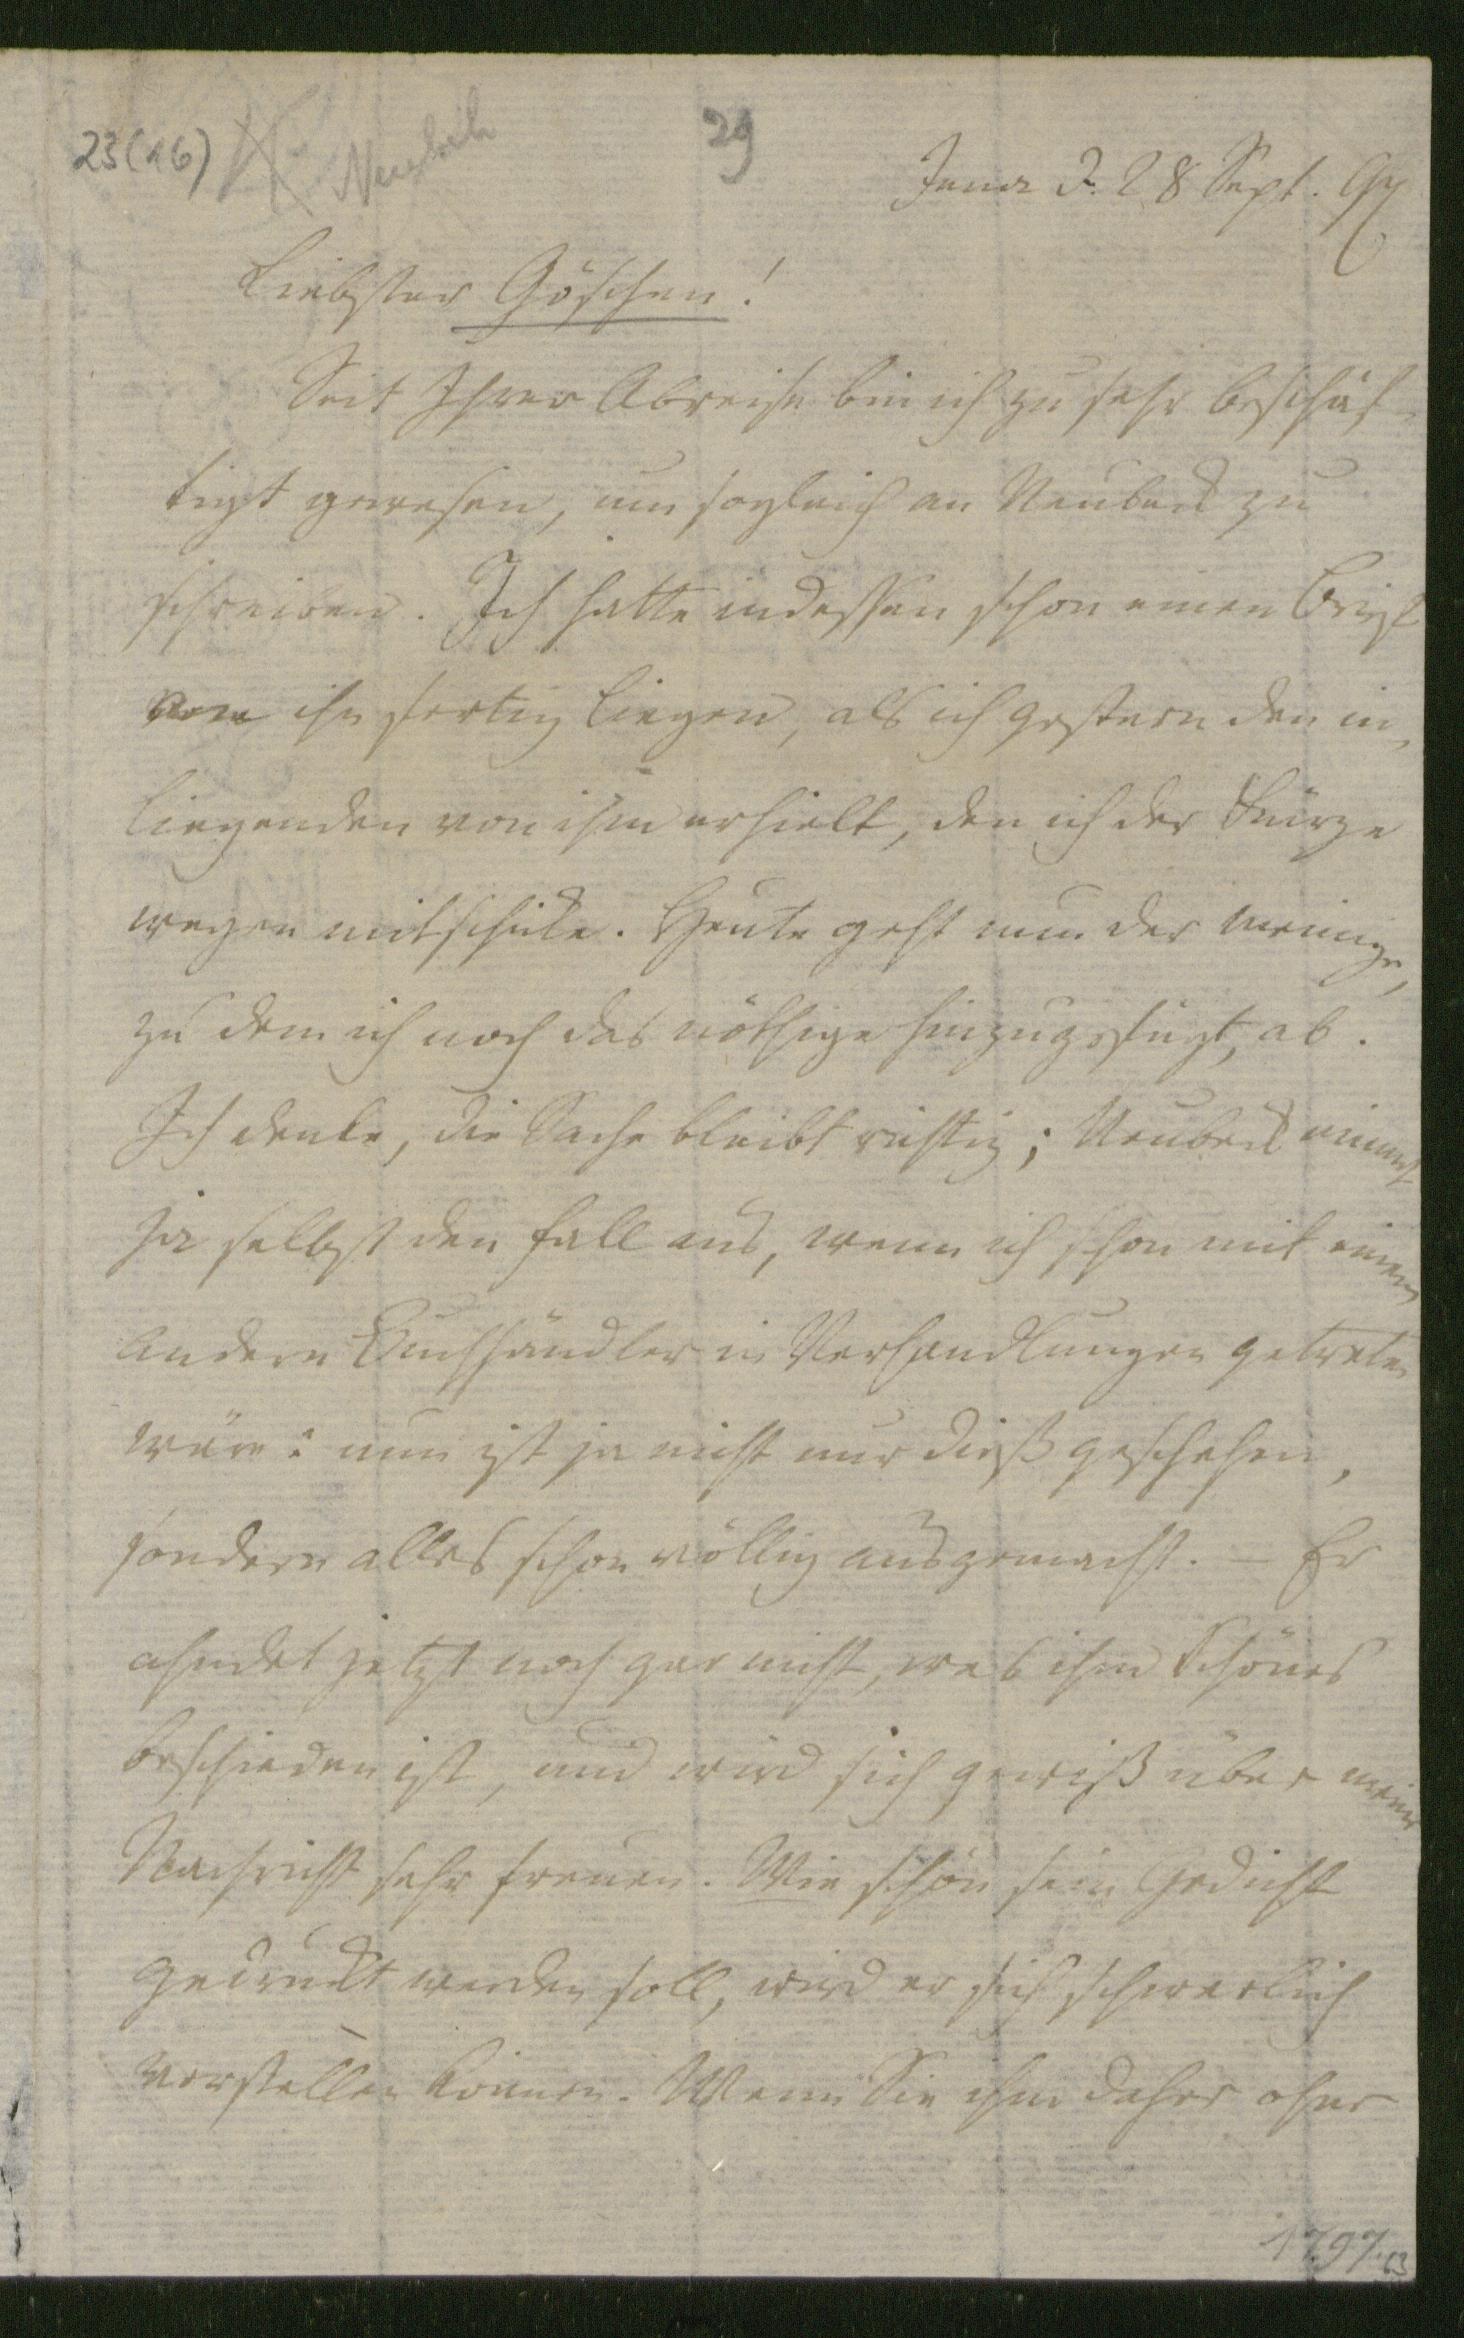 23(16)
29
Jena d. 28 Sept. 97
Liebster Göschen!
Seit Ihrer Abreise bin ich zu sehr beschäf-
tigt gewesen, um sogleich an Neubeck zu
schreiben. Ich hatte indessen schon einen Brief
an ihn fertig liegen, als ich gestern den in-
liegenden von ihm erhielt, den ich der Kürze
wegen mitschicke. Heute geht nun der meinige,
zu dem ich noch das nöthige hinzugefügt, ab.
Ich denke, die Sache bleibt richtig; Neubeck nimmt
ja selbst den Fall aus, wenn ich schon mit einem
andern Buchhändler in Verhandlungen getreten
wäre: nun ist ja nicht nur dieß geschehen,
sondern alles schon völlig ausgemacht. – Er
ahndet jetzt noch gar nicht, was ihm Schönes
beschieden ist, und wird sich gewiß über meine
Nachricht sehr freuen. Wie schön sein Gedicht
gedruckt werden soll, wird er sich schwerlich
vorstellen können. Wenn Sie ihm daher ohne
1797.